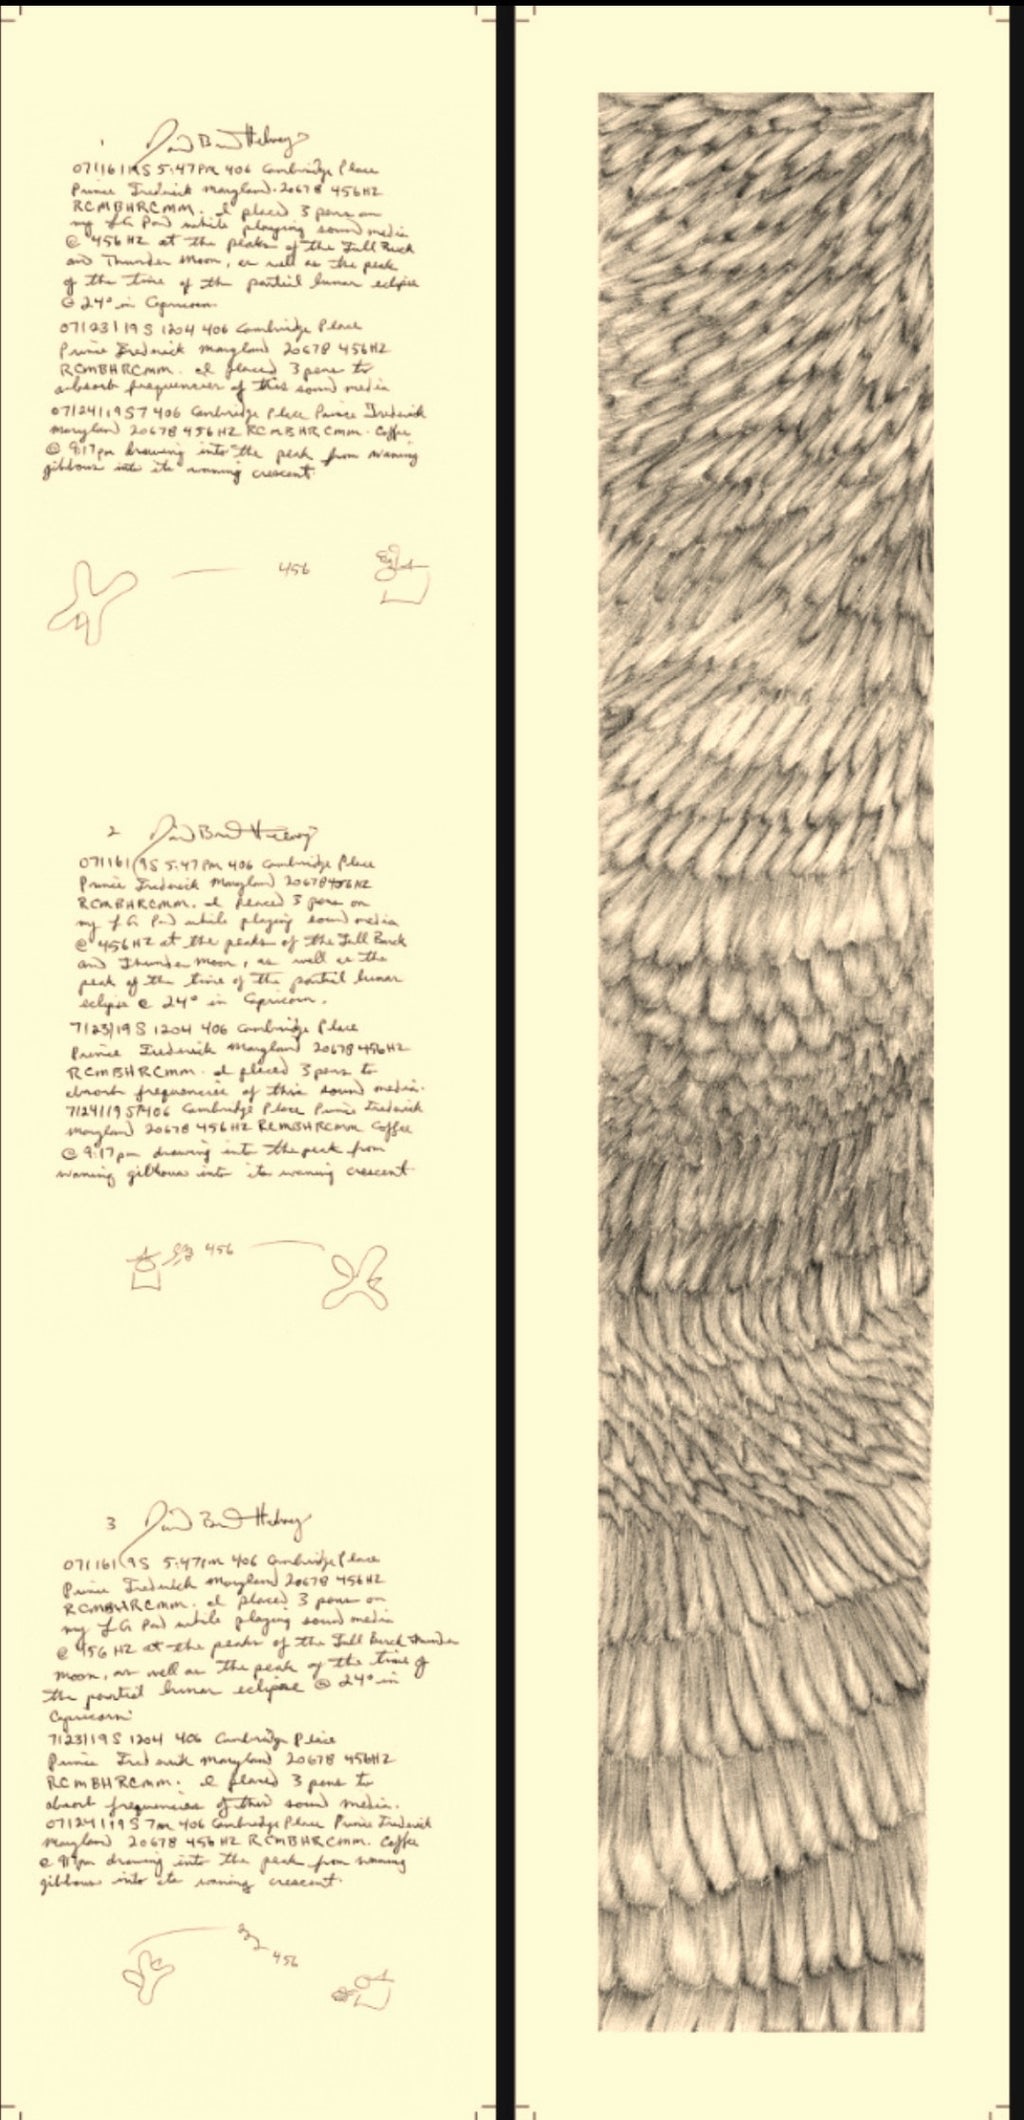 1
07/16/19S 5:47PM 406 Cambridge Place
Prince Frederick Maryland. 20678 456HZ
RCMBHRCMM. I placed 3 pens on
my LG Pad while playing sound media
@ 456HZ at the peaks of the Full Buck
and Thunder Moon, as well as the peak
of the time of the partial lunar eclipse
@ 24° in Capricorn
07/23/19 S 1204 406 Cambridge Place
Prince Frederick Maryland 20678 456HZ
RCMBHRCMM. I placed 3 pens to
absorb frequencies of this sound media
07/24/19 S7 406 Cambridge Place Prince Frederick
Maryland 20678 456HZ RCMBHRCMM. Coffee
@ 9:17pm drawing into the peak from waning
gibbous into its waning crescent.
456
2
07/16/19S 5:47PM 406 Cambridge Place
Prince Frederick Maryland 20678 456HZ
RCMBHRCMM. I placed 3 pens on
my LG Pad while playing sound media
@ 456HZ at the peaks of the Full Buck
and Thunder Moon, as well as the
peak of the time of the partial lunar
eclipse @ 24° in Capricorn.
7/23/19 S 1204 406 Cambridge Place
Prince Frederick Maryland 20678 456HZ
RCMBHRCMM. I placed 3 pens to
absorb frequencies of this sound media.
7/24/19 S7 406 Cambridge Place Prince Frederick
Maryland 20678 456HZ RCMBHRCMM Coffee
@ 9:17pm drawing into the peak from
waning gibbous into its waning crescent
456
3
07/16/19S 5:47PM 406 Cambridge Place
Prince Frederick Maryland 20678 456HZ
RCMBHRCMM. I placed 3 pens on
my LG Pad while playing sound media
@ 456 HZ at the peaks of the Full Buck Thunder
Moon, as well as the peak of the time of
the partial lunar eclipse @ 24° in
Capricorn.
7/23/19 S 1204 406 Cambridge Place
Prince Frederick Maryland 20678 456HZ
RCMBHRCMM. I placed 3 pens to
absorb frequencies of this sound media.
07/24/19 S 7M 406 Cambridge Place Prince Frederick
Maryland 20678 456HZ RCMBHRCMM. Coffee
@ 9:17pm drawing into the peak from waning
gibbous into its waning crescent.
456